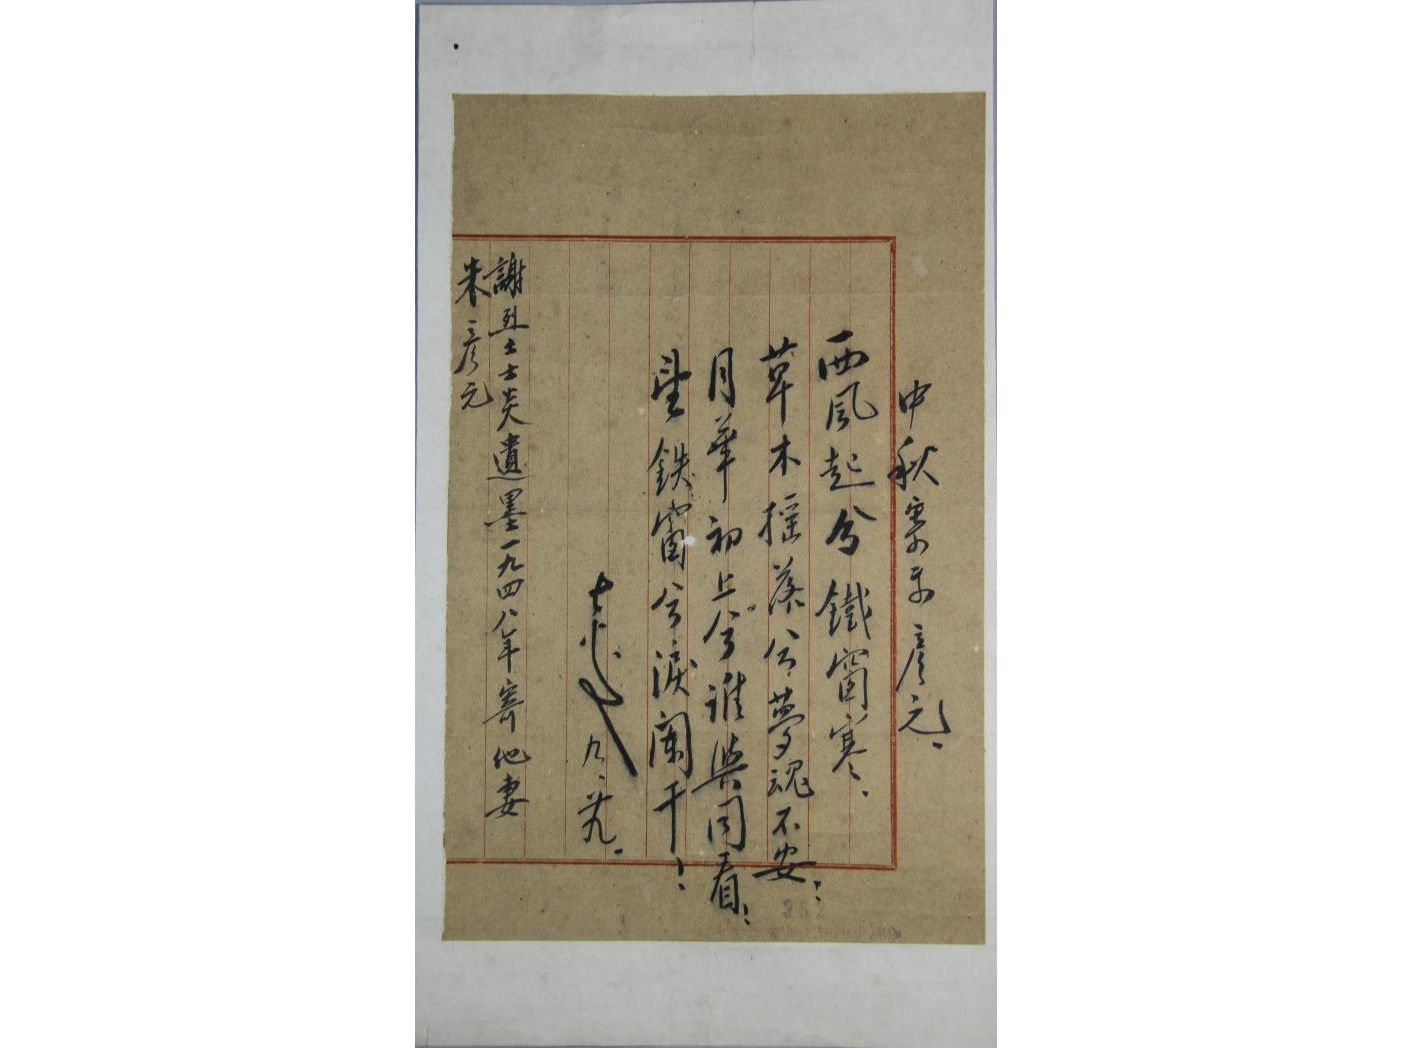 中秋寄示彦元、
西風起兮鐵窗寒、
草木摇落兮夢魂不安；
月華初上兮誰與同看！
望鉄窗兮淚闌干！
士炎 九、廿九、
謝烈士士炎遺墨一九四八年寄他妻
朱彦元
352